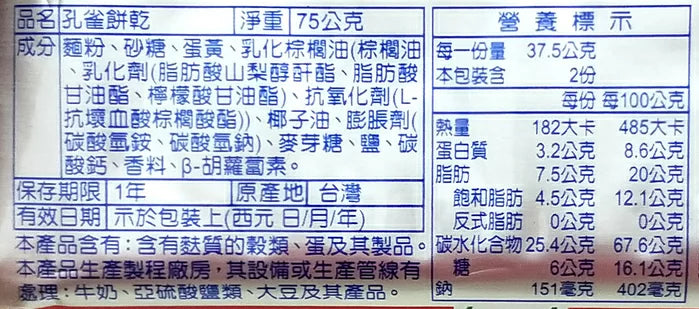 品名 孔雀餅乾 淨重 75公克
成分 麵粉、砂糖、蛋黃、乳化棕櫚油(棕櫚油
、乳化劑(脂肪酸山梨醇酐酯、脂肪酸
甘油酯、檸檬酸甘油酯)、抗氧化劑(L-
抗壞血酸棕櫚酸酯))、椰子油、膨脹劑(
碳酸氫銨、碳酸氫鈉)、麥芽糖、鹽、碳
酸鈣、香料、β-胡蘿蔔素。
保存期限 1年 原產地 台灣
有效日期 示於包裝上(西元 日/月/年)
本產品含有:含有麩質的穀類、蛋及其製品。
本產品生產製程廠房,其設備或生產管線有
處理:牛奶、亞硫酸鹽類、大豆及其產品。
營養標示
每一份量 37.5公克
本包裝含 2份
每份 每100公克
熱量 182大卡 485大卡
蛋白質 3.2公克 8.6公克
脂肪 7.5公克 20公克
飽和脂肪 4.5公克 12.1公克
反式脂肪 0公克 0公克
碳水化合物 25.4公克 67.6公克
糖 6公克 16.1公克
鈉 151毫克 402毫克